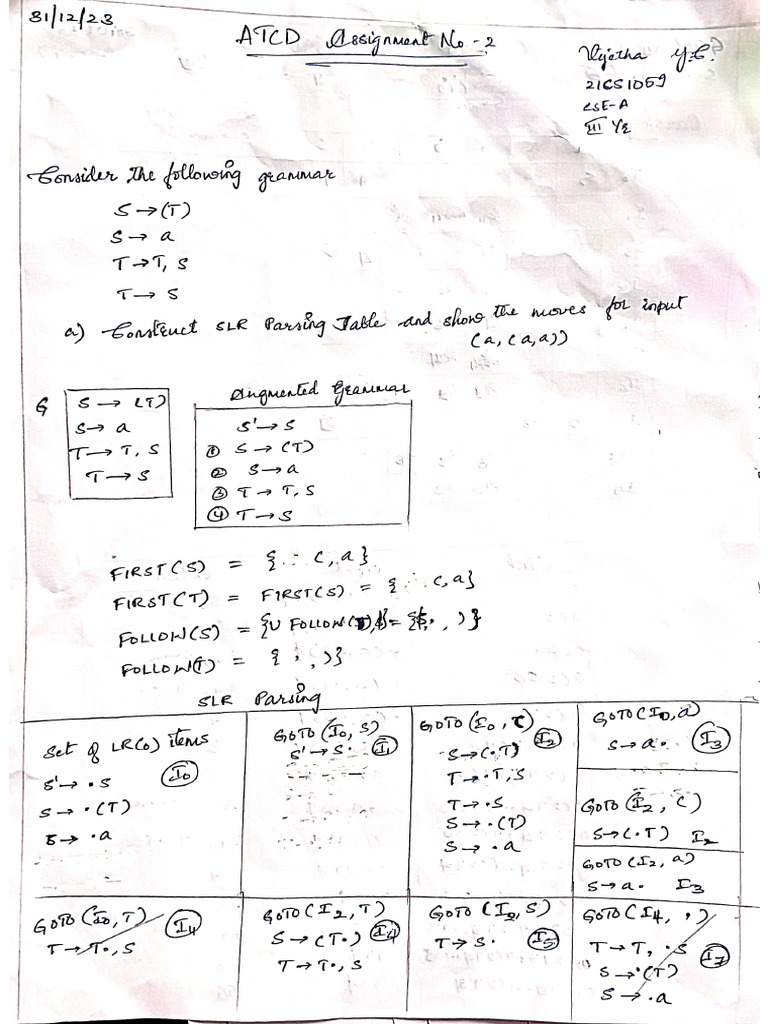 31/12/23
ATCD Assignment No - 2
Vijetha Y.C.
21CS1059
CSE-A
III Yr
Consider the following grammar
S → (T)
S → a
T → T, S
T → S
a) Construct SLR Parsing Table and show the moves for input
(a, (a,a))
G
S → (T)
S → a
T → T, S
T → S
Augmented Grammar
S' → S
① S → (T)
② S → a
③ T → T, S
④ T → S
FIRST(S) = { (, a}
FIRST(T) = FIRST(S) = { (, a}
FOLLOW(S) = {U FOLLOW(T), $} = {$, , )}
FOLLOW(T) = { , , )}
SLR Parsing
Set of LR(0) items
I0
S' → .S
S → .(T)
S → .a
GOTO (I0, S)
S' → S. I1
GOTO (I0, ()
I2
S → (.T)
T → .T, S
T → .S
S → .(T)
S → .a
GOTO (I0, a)
S → a. I3
GOTO (I2, ()
S → (.T) I2
GOTO (I2, a)
S → a. I3
GOTO (I0, T)
I4
T → T., S
GOTO (I2, T)
S → (T.) I4
T → T., S
GOTO (I2, S)
T → S. I5
GOTO (I4, ,)
T → T, .S
I7
S → .(T)
S → .a